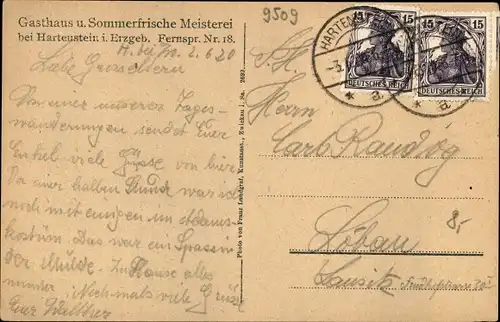 Gasthaus u. Sommerfrische Meisterei
bei Hartenstein i. Erzgeb. Fernspr. Nr. 18.
2.6.20
Liebe Grosseltern
Von einer unserer Tages-
wanderungen sendet Euer
Enkel viele Grüsse von hier
Vor einer halben Stund war ich
noch mit einigen im Adams-
kostüm. Das war ein Spass in
der Mulde. Zu Hause alles
munter. Nochmals viele Grüsse
Euer Walther
9509
HARTENSTEIN
15 15
DEUTSCHES REICH
15 15
DEUTSCHES REICH
Herrn
Carl
Löbau
Lausitz
8,-
Photo von Franz Landgraf, Kunstanst., Zwickau i. Sa. 2692